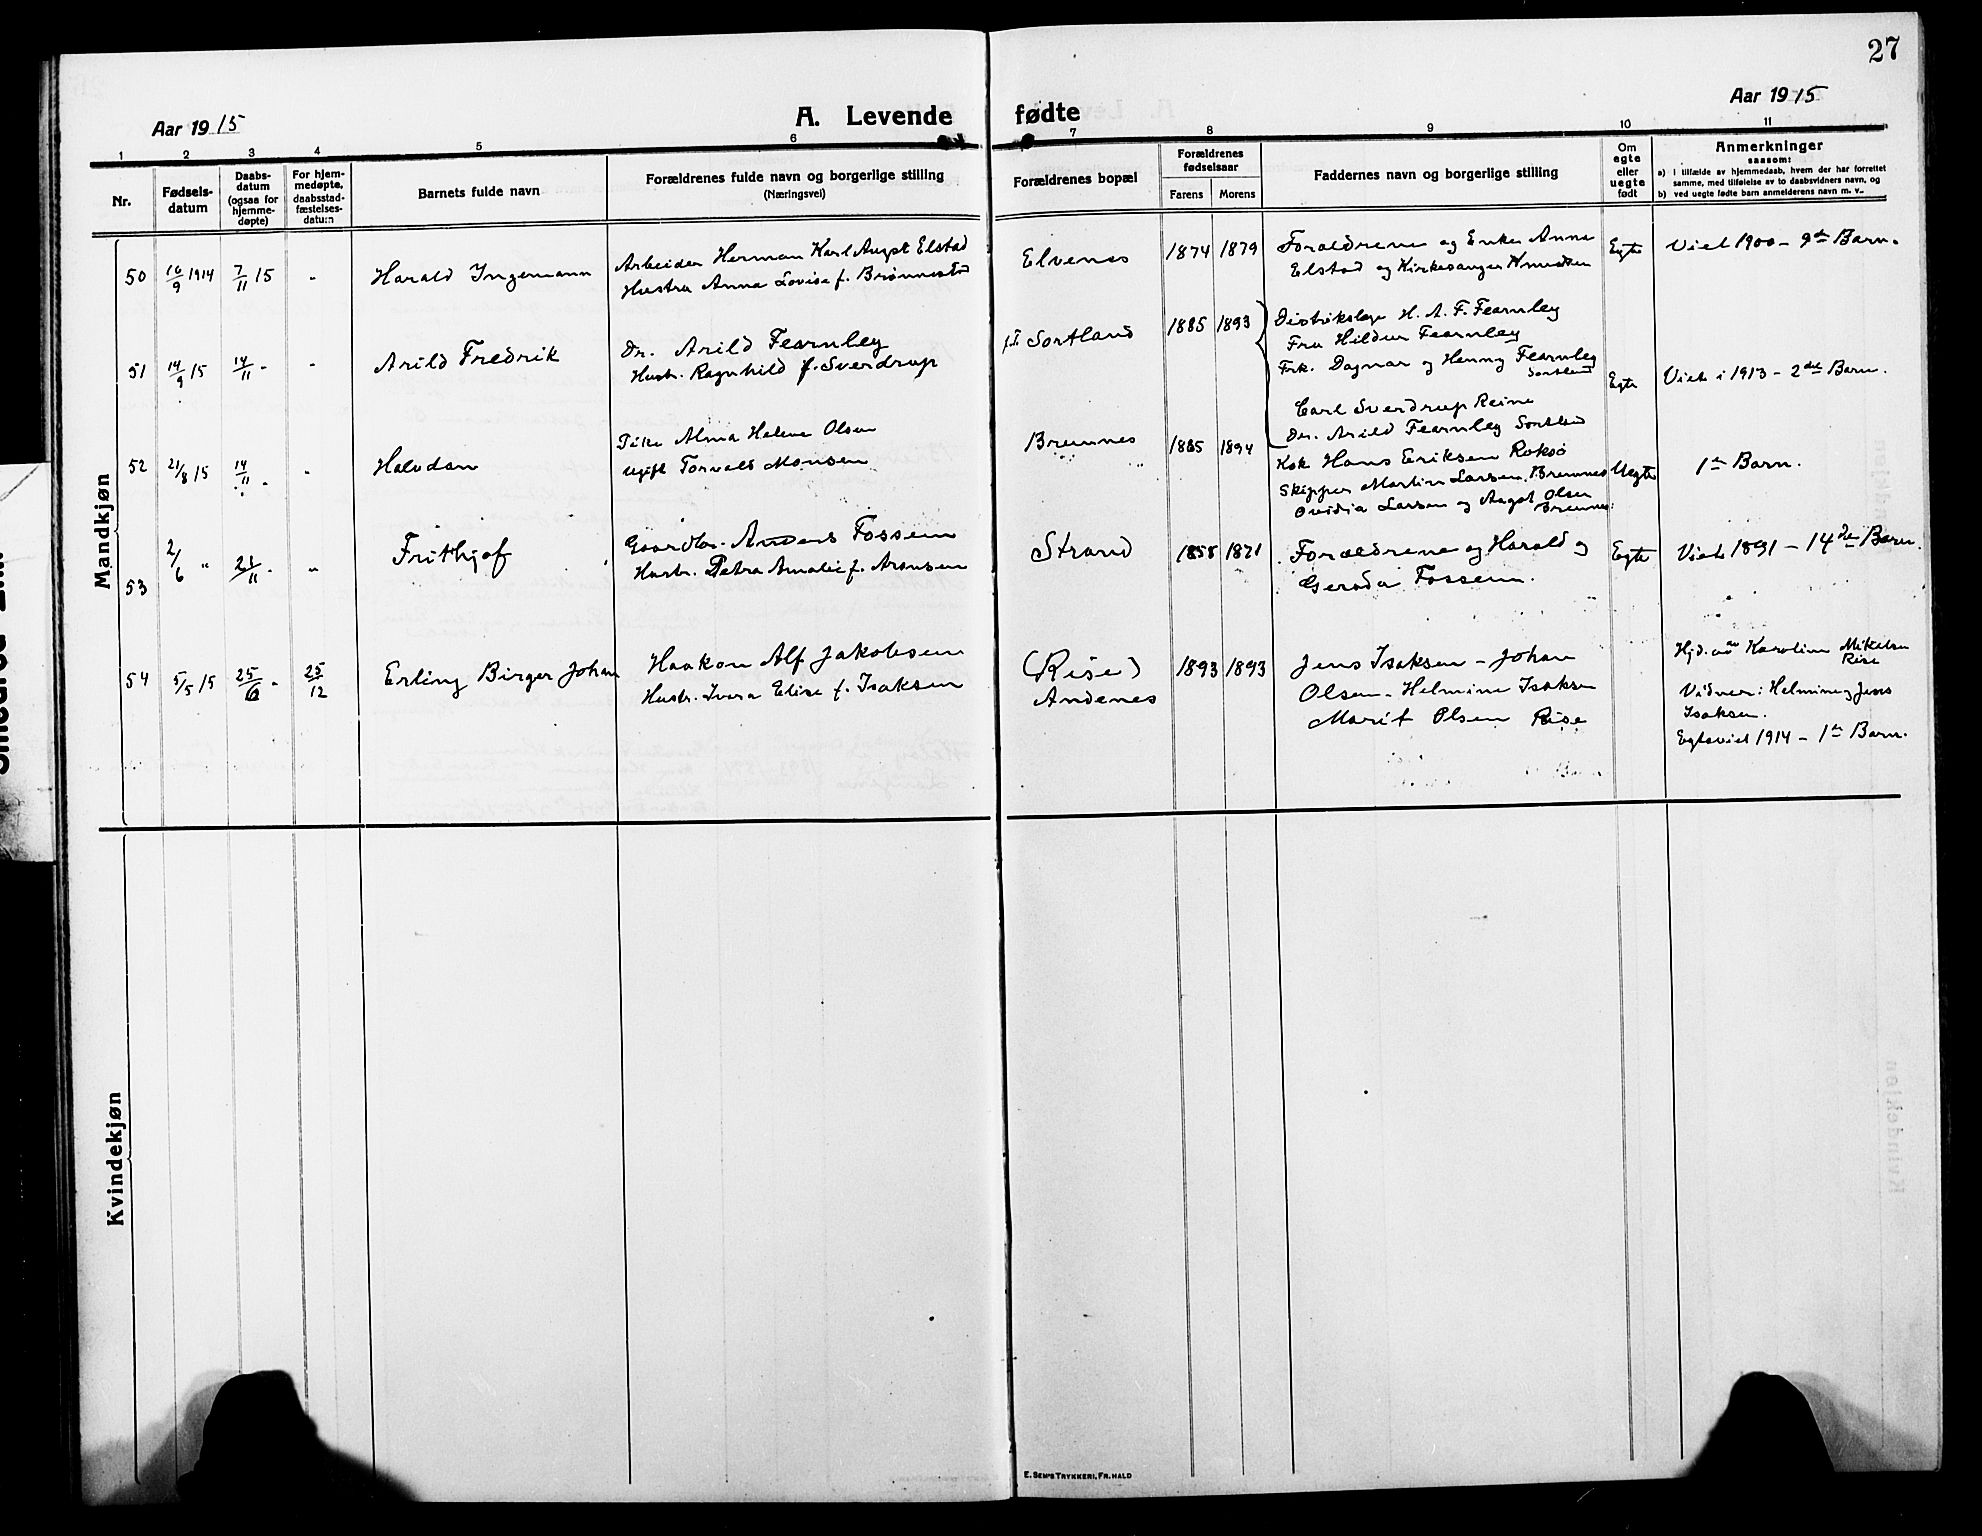 27
Aar 1915
A. Levende fødte
Aar 1915
1 2 3 4 5 6 7 8 9 10 11
Nr.
Fødsels-
datum
Daabs-
datum
(ogsaa for
hjemme-
døpte)
For hjem-
medøpte,
daabsstad-
fæstelses-
datum
Barnets fulde navn
Forældrenes fulde navn og borgerlige stilling
(Næringsvei)
Forældrenes bopæl
Forældrenes
fødselsaar
Farens Morens
Faddernes navn og borgerlige stilling
Om
egte
eller
uegte
født
Anmerkninger
saasom:
a) I tilfælde av hjemmedaab, hvem der har forrettet
samme, med tilføielse av to daabsvidners navn, og
b) ved uegte fødte barn anmelderens navn m. v.
Mandkjøn
50 16/9 1914 7/11 15 "
Harald Ingemann
Arbeider Herman Karl Augst Elstad
Hustru Anna Lovise f. Brønnestad
Elvenes
1874 1879
Forældrene og Enke Anna
Elstad og Kirkesanger Knudsen
Egte
Viet 1900 - 9de Barn.
51 14/9 15 14/11 - "
Arild Fredrik
Dr. Arild Fearnley
Hustr. Ragnhild f. Sverdrup
p.t. Sortland
1885 1893
Distriktslæge H. A. F. Fearnley
Fru Hildur Fearnley
Frk. Dagmar og Henny Fearnley
Sortland
Carl Sverdrup Reine
Dr. Arild Fearnley Sortland
Egte
Viet i 1913 - 2det Barn.
52 21/8 15 14/11 - "
Halvdan
Pike Alma Helene Olsen
Ugift Torvald Monsen
Bremnes
" "
1885 1894
Kok Hans Eriksen Roksø
Skipper Martin Larsen, Bremnes
Ovidia Larsen og Aagot Olsen
Bremnes
Uegte
1ste Barn.
53 2/6 " 21/11 - "
Frithjof
Gaardbr. Anders Fossem
Hustr. Petra Amalie f. Aronsen
Strand
1858 1871
Forældrene og Harald og
Gerda Fossem.
Egte
Viet 1891 - 14de Barn.
54 5/5 15 25/6 - 25/12
Erling Birger Johan
Haakon Alf Jakobsen
Hustr. Ivara Elise f. Isaksen
(Rise)
Andenes
1893 1893
Jens Isaksen - Johan
Olsen - Helmine Isaksen
Marit Olsen Rise
Hjd. av Karoline Mikelsen
Rise
Vidner: Helmine og Jens
Isaksen.
Egteviet 1914 - 1ste Barn.
Kvindekjøn
E. Sem's Trykkeri, Fr.hald